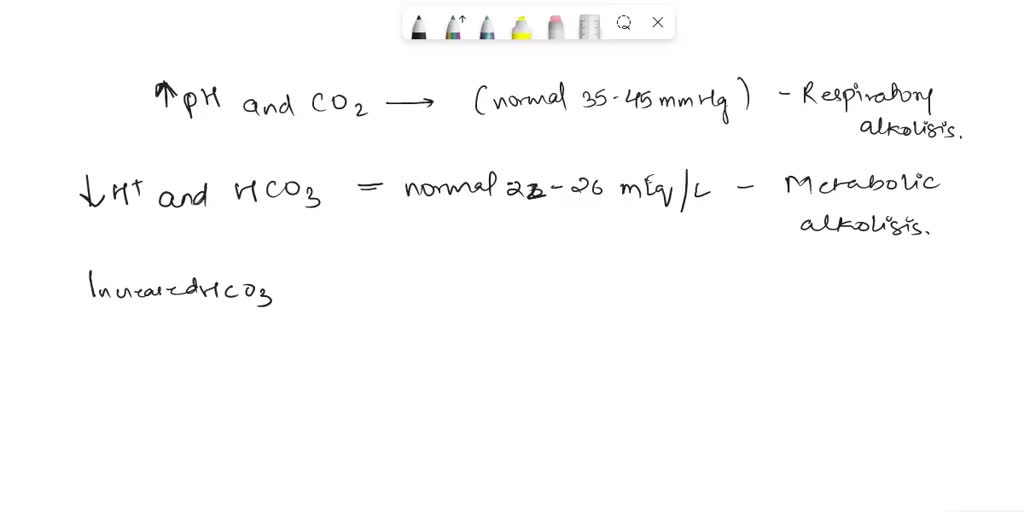 ↑ pH and CO2 → (normal 35-45 mmHg) - Respiratory
alkolisis.
↓ H+ and HCO3 = normal 22-26 mEq/L - Metabolic
alkolisis.
Increased HCO3